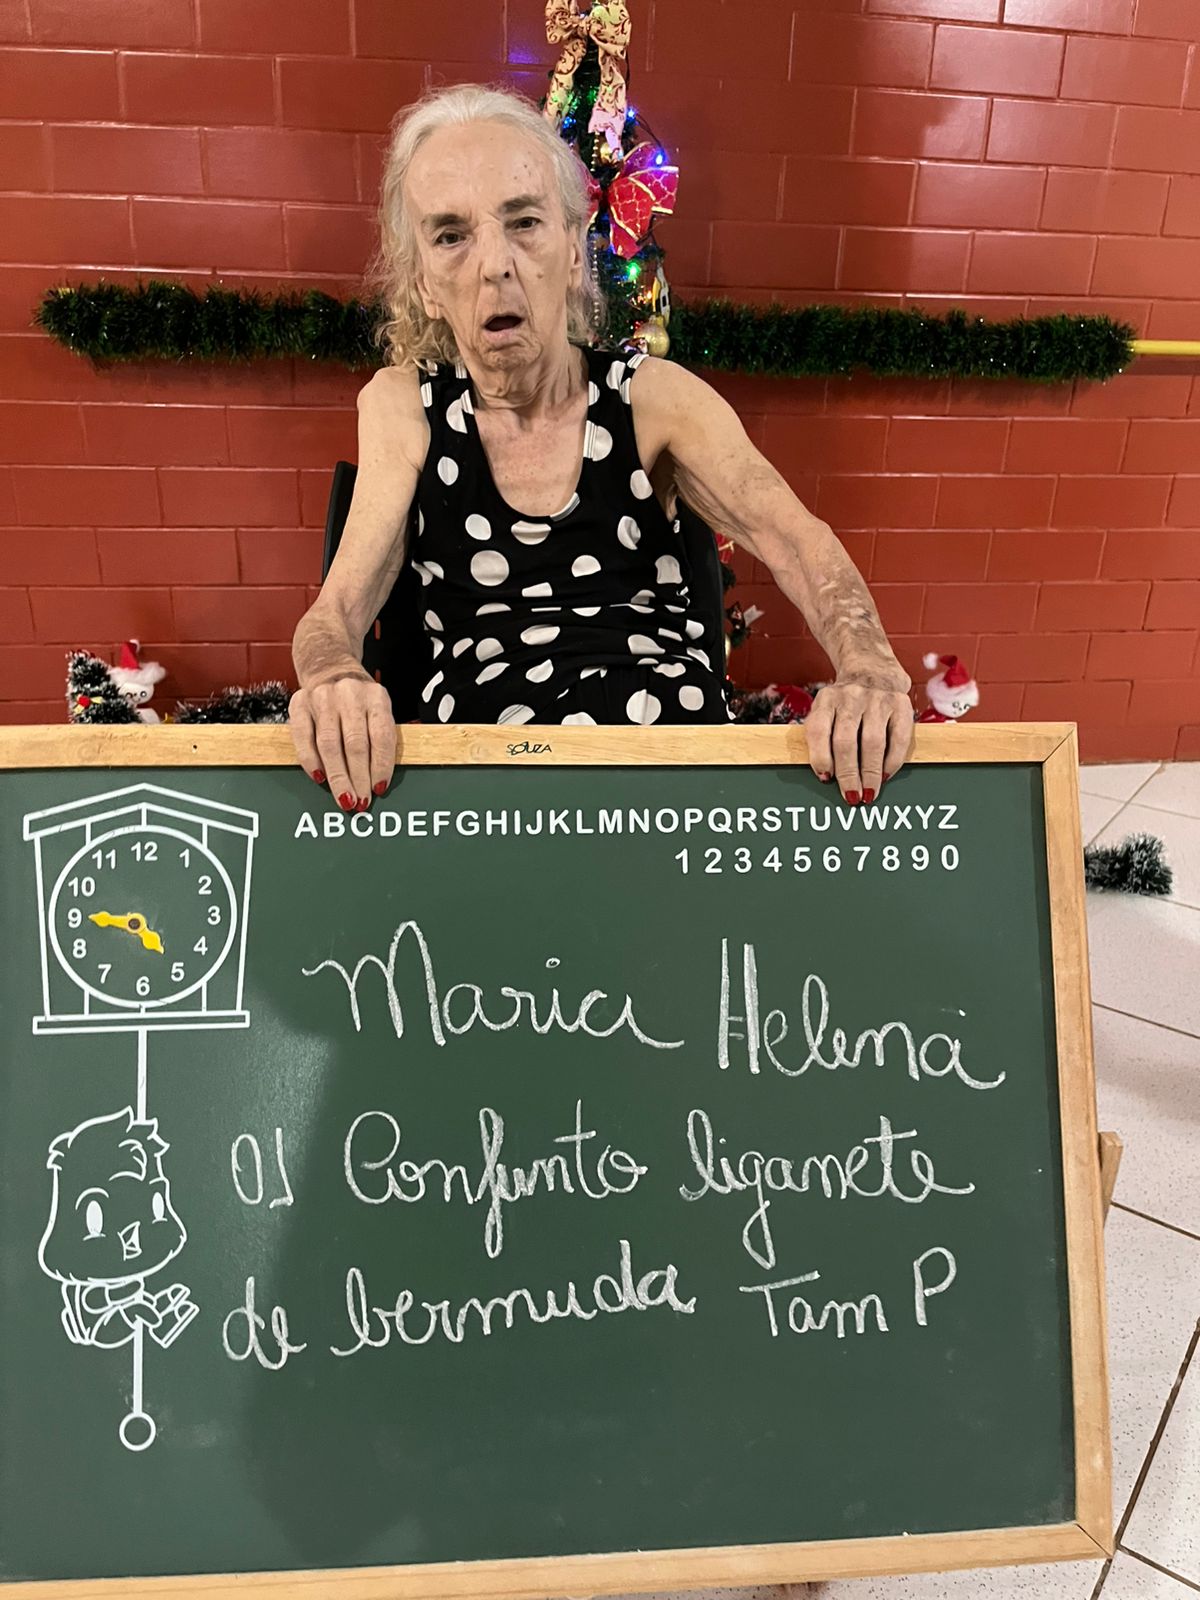 SOUZA
ABCDEFGHIJKLMNOPQRSTUVWXYZ
1234567890
11 12 1
10 2
9 3
8 4
7 6 5
Maria Helena
01 Conjunto liganete
de bermuda Tam P